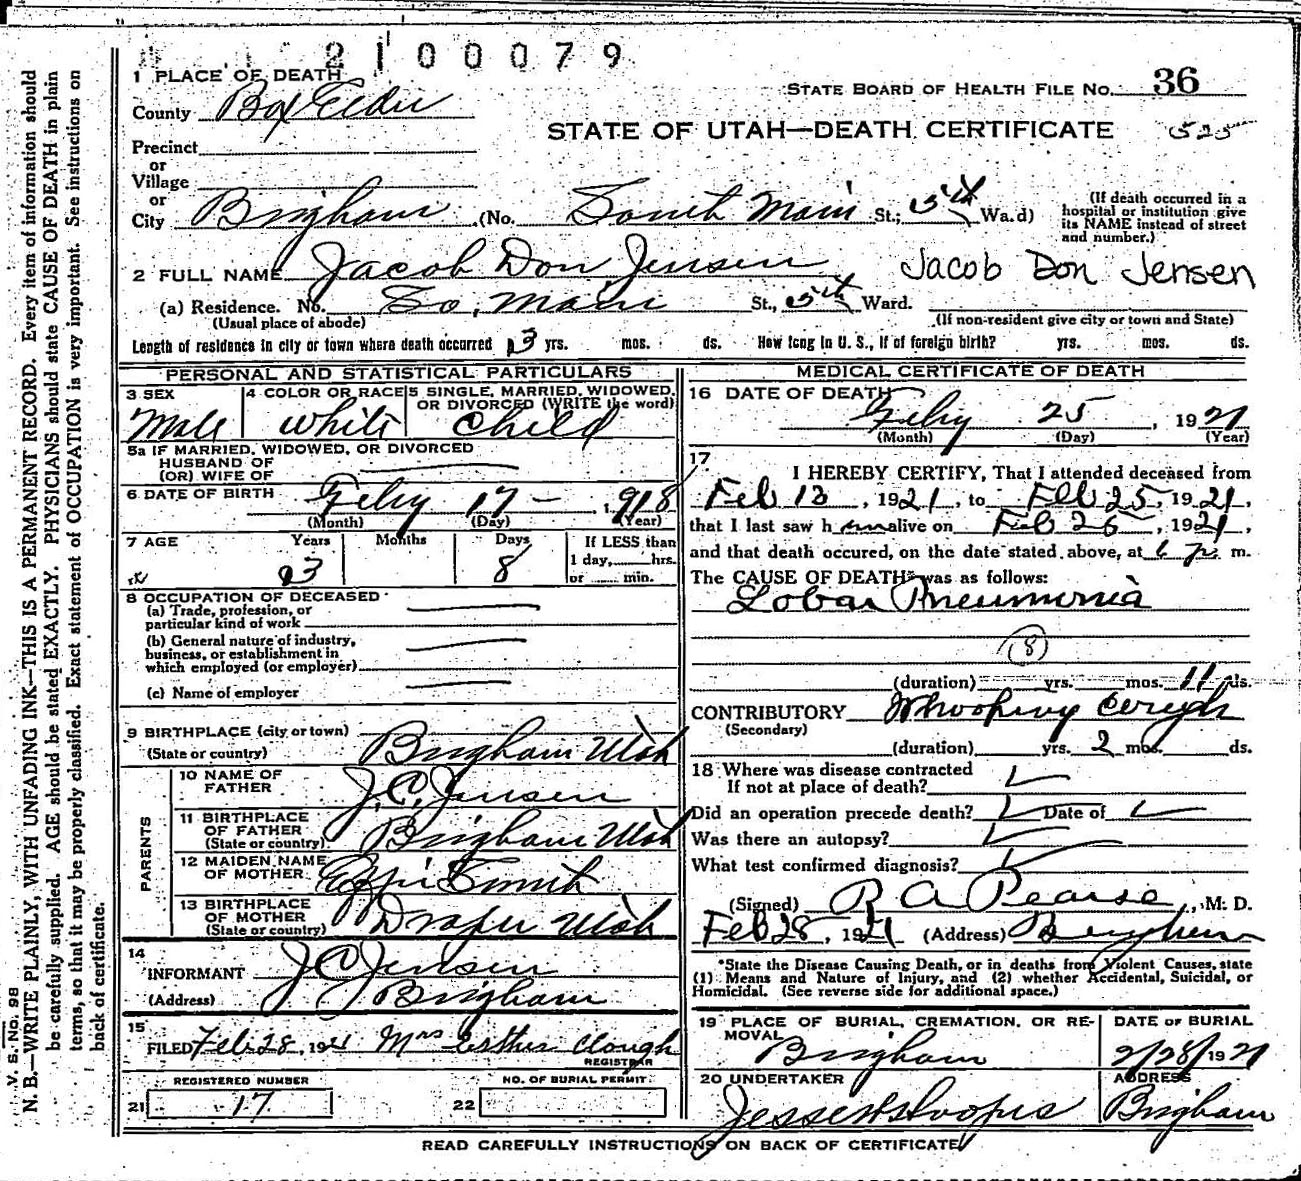 2100079
1 PLACE OF DEATH
County Box Elder
STATE BOARD OF HEALTH FILE NO. 36
STATE OF UTAH—DEATH CERTIFICATE 525
Precinct
or
Village
or
City Brigham (No. South Main St.; 5th Wa.d)
(If death occurred in a hospital or institution give its NAME instead of street and number.)
2 FULL NAME Jacob Don Jensen Jacob Don Jensen
(a) Residence. No. So. Main St., 5th Ward.
(Usual place of abode) (If non-resident give city or town and State)
Length of residence in city or town where death occurred 3 yrs. mos. ds. How long in U. S., if of foreign birth? yrs. mos. ds.
PERSONAL AND STATISTICAL PARTICULARS
3 SEX Male
4 COLOR OR RACE White
5 SINGLE, MARRIED, WIDOWED, OR DIVORCED (WRITE the word) Child
5a IF MARRIED, WIDOWED, OR DIVORCED
HUSBAND OF
(OR) WIFE OF
6 DATE OF BIRTH Feby 17 - 1918
(Month) (Day) (Year)
7 AGE Years Months Days If LESS than
3 8 1 day, hrs.
or min.
8 OCCUPATION OF DECEASED
(a) Trade, profession, or
particular kind of work
(b) General nature of industry,
business, or establishment in
which employed (or employer)
(c) Name of employer
9 BIRTHPLACE (city or town)
(State or country) Brigham Utah
PARENTS
10 NAME OF FATHER J. C. Jensen
11 BIRTHPLACE OF FATHER (State or country) Brigham Utah
12 MAIDEN NAME OF MOTHER Effie Smith
13 BIRTHPLACE OF MOTHER (State or country) Draper Utah
14 INFORMANT J C Jensen
(Address) Brigham
15 FILED Feb 28, 1921 Mrs Esther Clough
REGISTRAR
REGISTERED NUMBER NO. OF BURIAL PERMIT
21 17 22
MEDICAL CERTIFICATE OF DEATH
16 DATE OF DEATH
Feby 25, 1921
(Month) (Day) (Year)
17
I HEREBY CERTIFY, That I attended deceased from
Feb 13, 1921, to Feb 25, 1921,
that I last saw him alive on Feb 25, 1921,
and that death occured, on the date stated above, at 6 P. m.
The CAUSE OF DEATH* was as follows:
Lobar Pneumonia
8
(duration) yrs. mos. 11 ds.
CONTRIBUTORY Whooping Cough
(Secondary)
(duration) yrs. 2 mos. ds.
18 Where was disease contracted
If not at place of death?
Did an operation precede death? Date of
Was there an autopsy?
What test confirmed diagnosis?
(Signed) R A Pearse, M. D.
Feb 28, 1921 (Address) Brigham
*State the Disease Causing Death, or in deaths from Violent Causes, state
(1) Means and Nature of Injury, and (2) whether Accidental, Suicidal, or
Homicidal. (See reverse side for additional space.)
19 PLACE OF BURIAL, CREMATION, OR REMOVAL Brigham
DATE OF BURIAL 2/28/1921
20 UNDERTAKER
ADDRESS
Brigham
READ CAREFULLY INSTRUCTIONS ON BACK OF CERTIFICATE
V. S. No. 98
N. B.—WRITE PLAINLY, WITH UNFADING INK—THIS IS A PERMANENT RECORD. Every item of information should
be carefully supplied. AGE should be stated EXACTLY. PHYSICIANS should state CAUSE OF DEATH in plain
terms, so that it may be properly classified. Exact statement of OCCUPATION is very important. See instructions on
back of certificate.